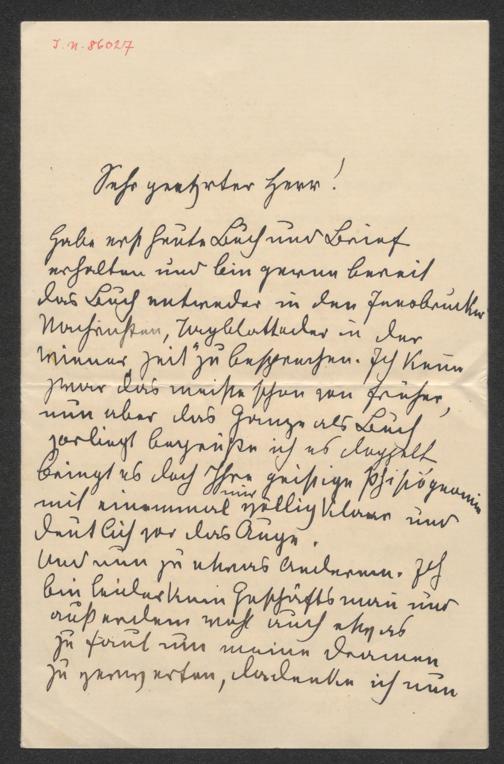 J. N. 86027
Sehr geehrter Herr!
Habe erst heute Buch und Brief
erhalten und bin gerne bereit
das Buch entweder in den Innsbrucker
Nachrichten, Tagblatt oder in der
Wiener Zeit zu besprechen. Ich kenne
zwar das meiste schon von früher,
nun aber das Ganze als Buch
vorliegt begrüße ich es doppelt
bringt es doch Ihre geistige Phisiognomie
mit einemmal mir völlig klar und
deutlich vor das Auge.
Und nun zu etwas anderem. Ich
bin leider kein Geschäftsmann und
außerdem wohl auch etwas
zu faul um meine Dramen
zu verwerten, da denke ich nun